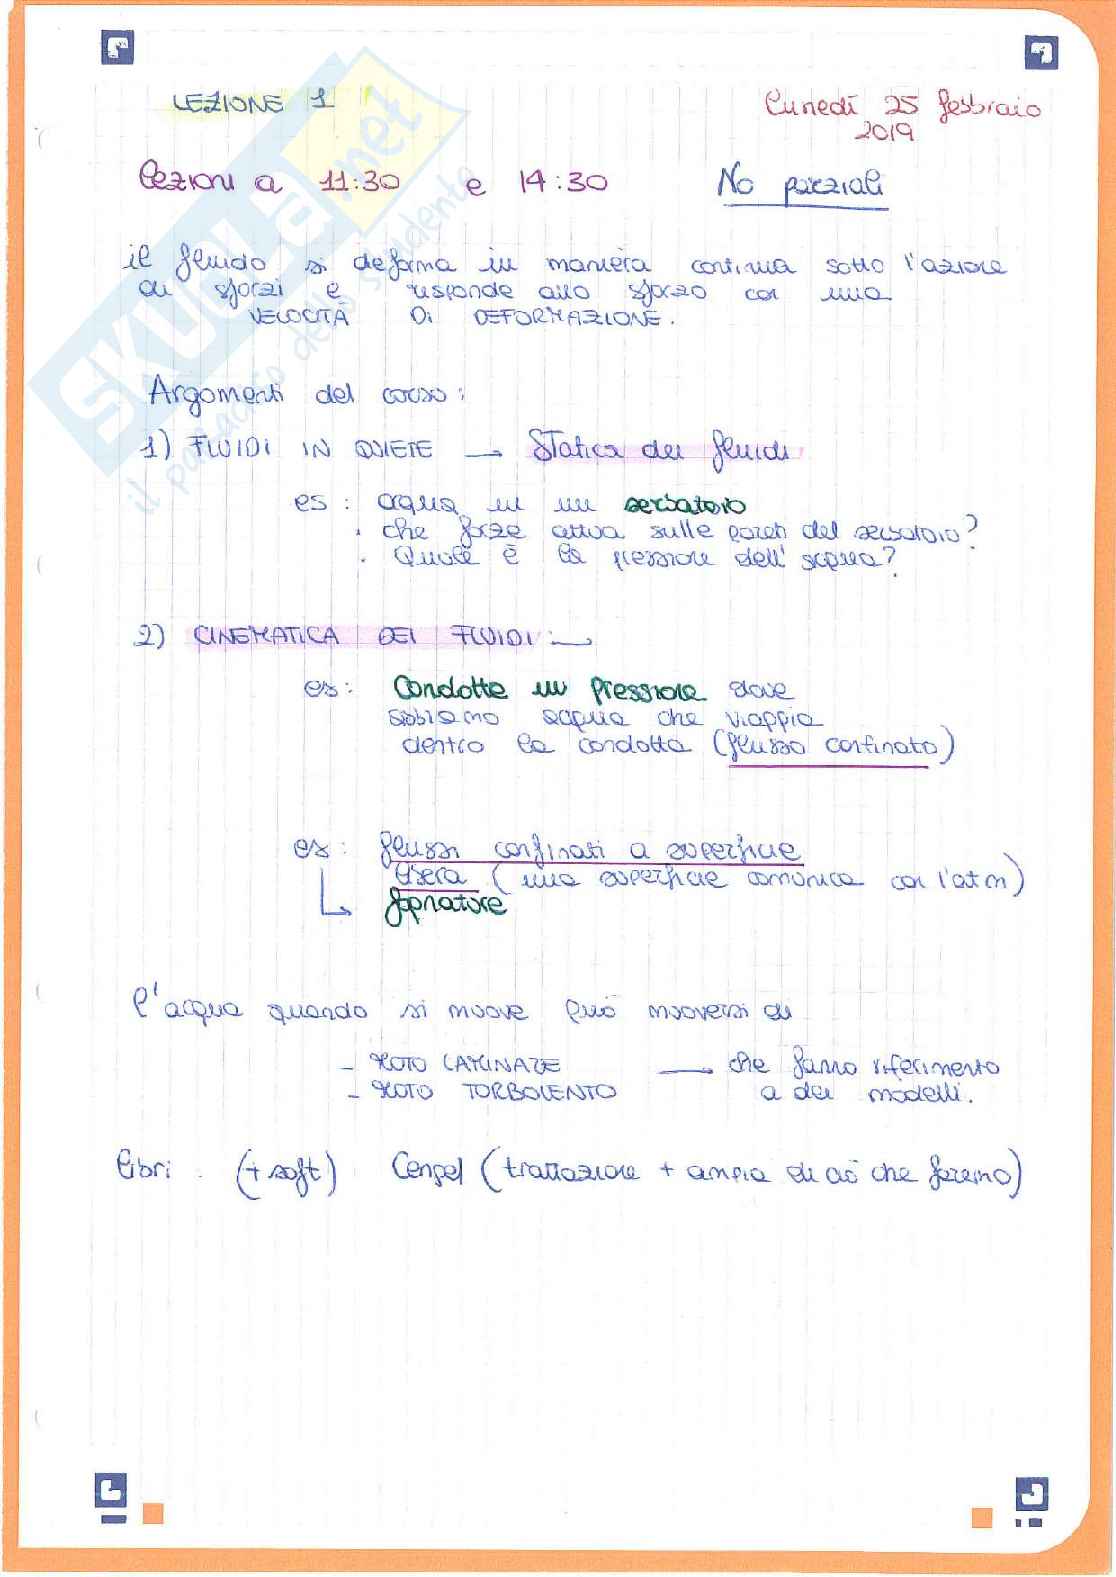 LEZIONE 1
Lunedì 25 febbraio
2019
Lezioni a 11:30 e 14:30 No parziali
il fluido si deforma in maniera continua sotto l'azione
di sforzi e risponde allo sforzo con una
VELOCITÀ DI DEFORMAZIONE.
Argomenti del corso:
1) FLUIDI IN QUIETE → Statica dei fluidi
es: acqua in un serbatoio
. che forze attiva sulle pareti del serbatoio?
. Qual è la pressione dell'acqua?
2) CINEMATICA DEI FLUIDI: →
es: Condotte in pressione dove
abbiamo acqua che viaggia
dentro la condotta (flusso confinato)
es: flussi confinati a superficie
libera (una superficie comunica con l'atm)
↳ fognature
l'acqua quando si muove può muoversi di
- MOTO LAMINARE → che fanno riferimento
- MOTO TURBOLENTO a dei modelli.
libri: (+ soft) Cengel (trattazione + ampia di ciò che faremo)
SKUOLA.net
il paradiso dello studente